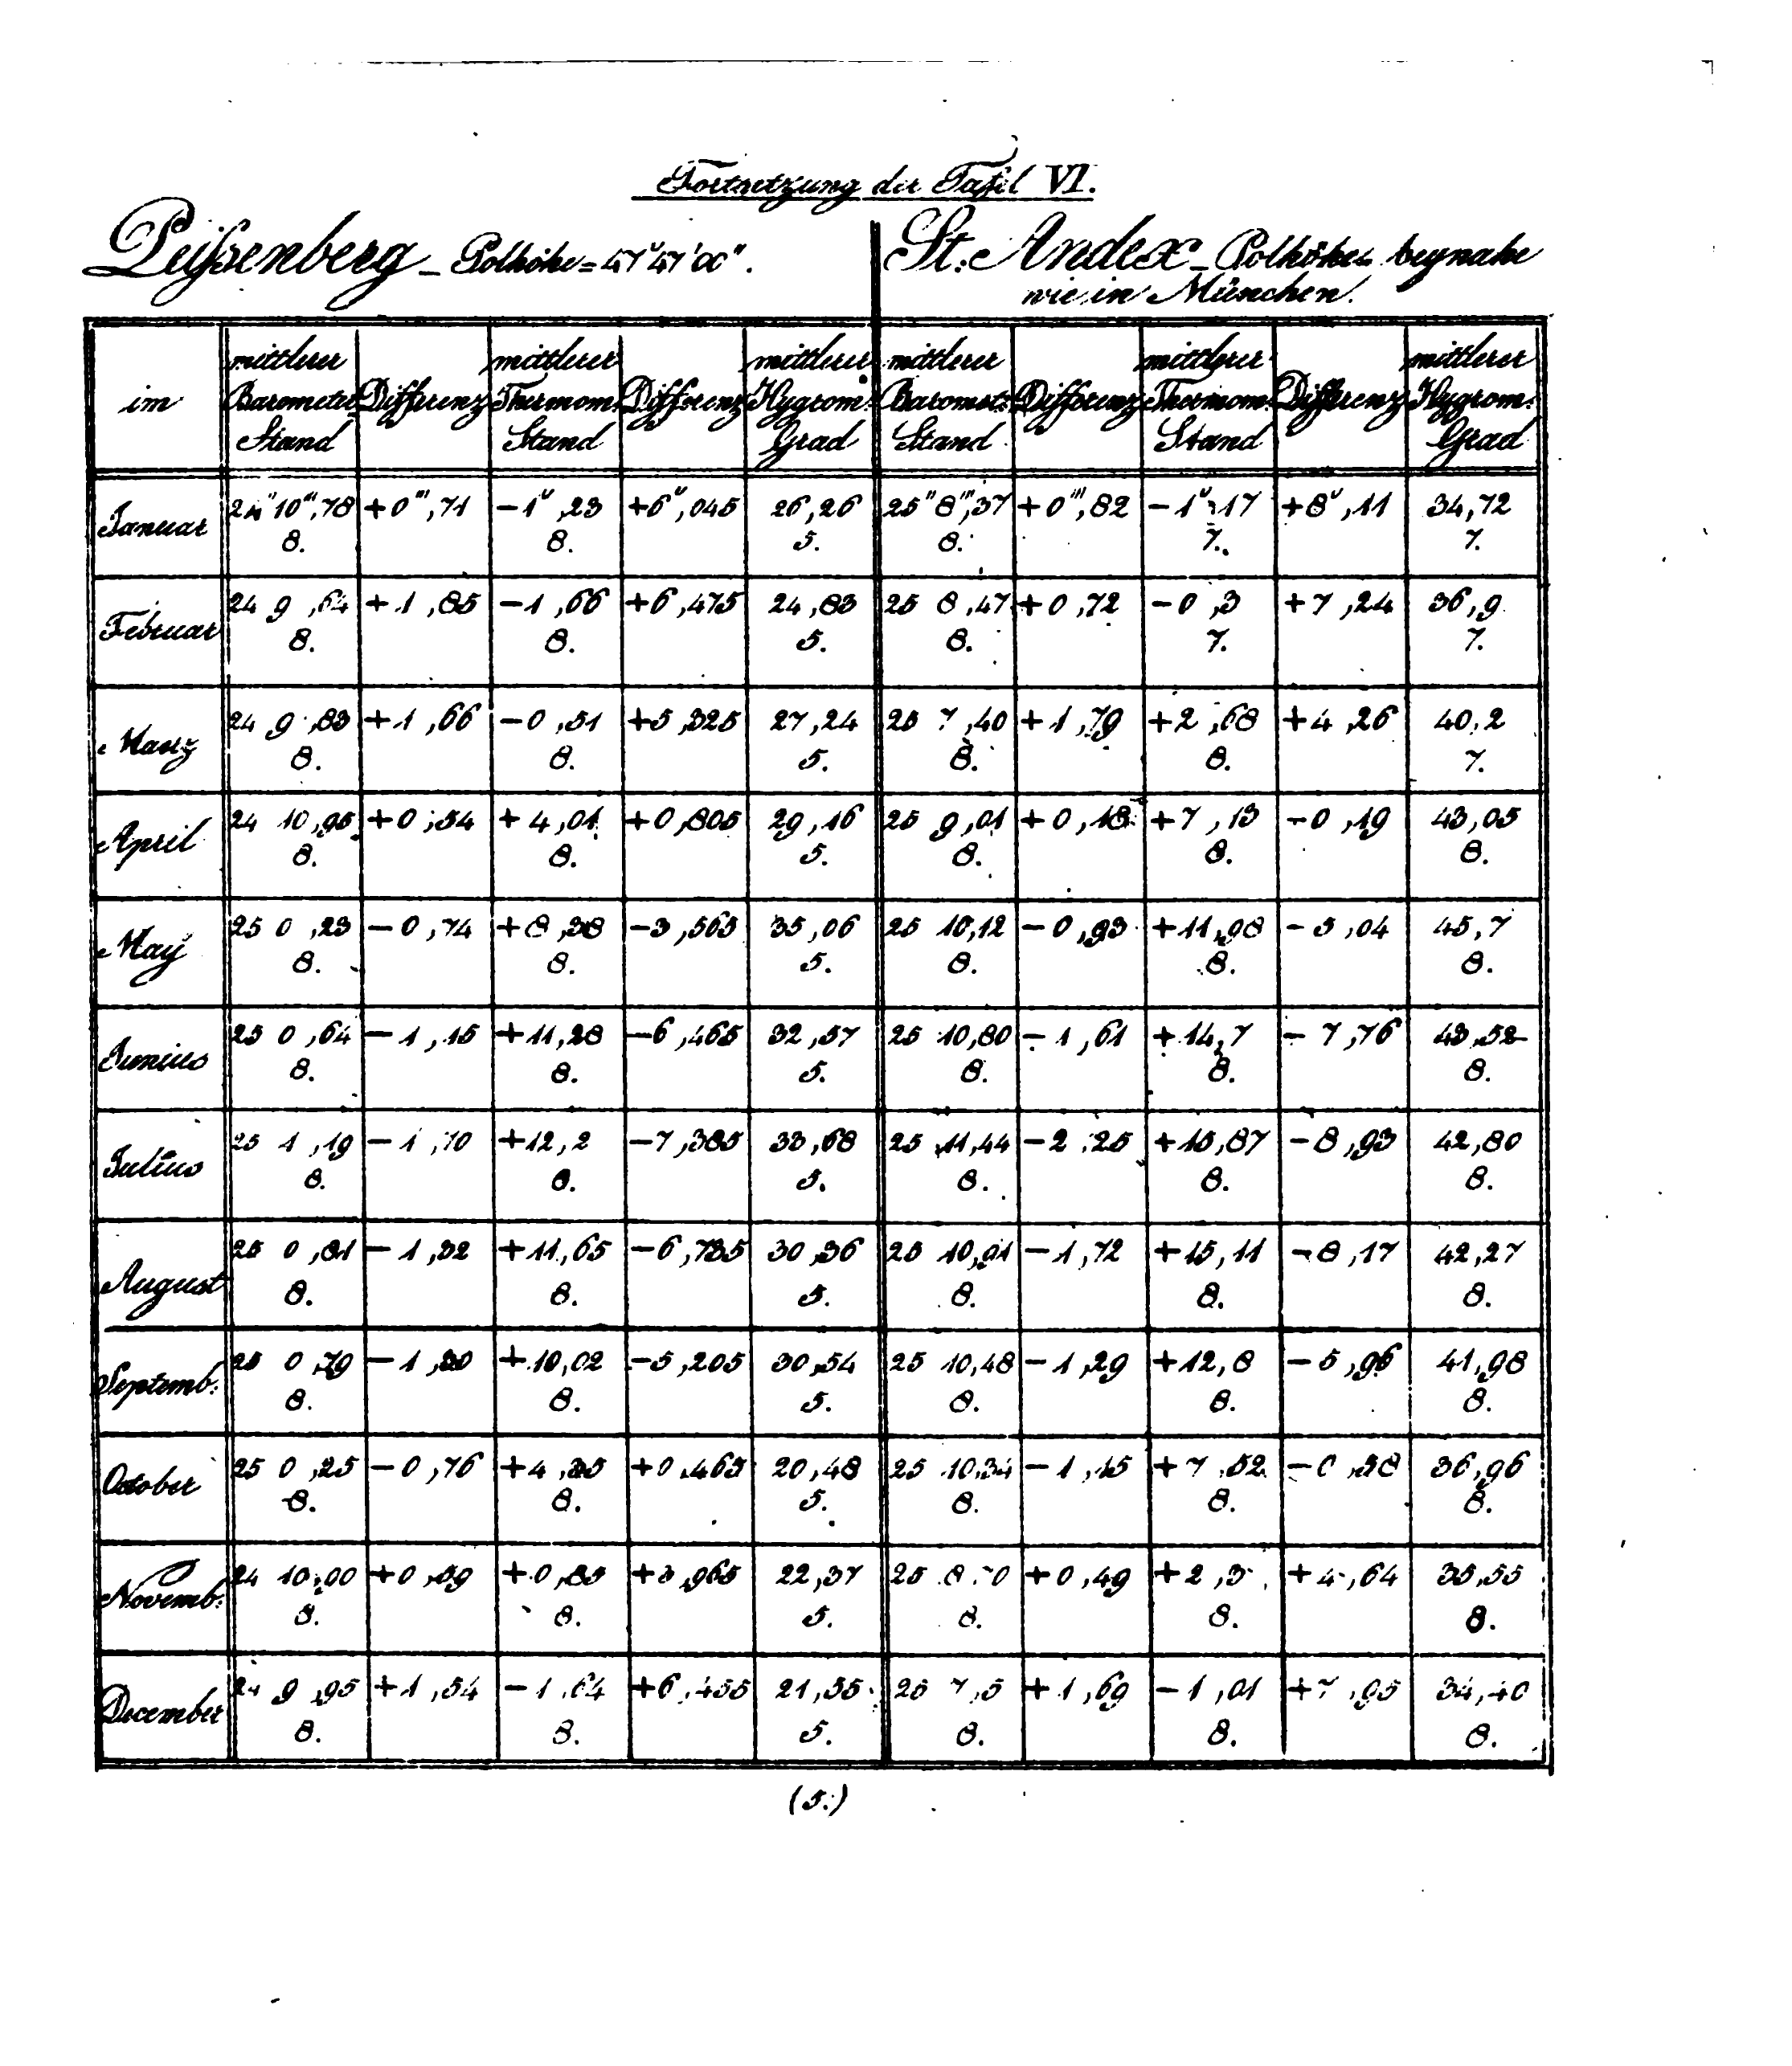 Fortsetzung der Tafel VI.
Peißenberg – Polhöhe = 47° 47' 00".
St: Andex – Polhöhe beynahe
wie in München.
im mittlerer Barometer Stand Differenz mittlerer Thermom: Stand Differenz mittlerer Hygrom: Grad mittlerer Baromet: Stand Differenz mittlerer Thermom: Stand Differenz mittlerer Hygrom: Grad
Januar 24" 10''',78 +0''',71 –1°,23 +6°,045 26,26 25" 8''',37 +0''',82 –1°,17 +8°,11 34,72
8. 8. 5. 8. 7. 7.
Februar 24 9,64 +1,85 –1,66 +6,475 24,83 25 8,47 +0,72 –0,3 +7,24 36,9
8. 8. 5. 8. 7. 7.
März 24 9,83 +1,66 –0,51 +5,325 27,24 25 7,40 +1,79 +2,68 +4,26 40,2
8. 8. 5. 8. 8. 7.
April 24 10,95 +0,54 +4,01 +0,805 29,16 25 9,01 +0,18 +7,13 –0,19 43,05
8. 8. 5. 8. 8. 8.
May 25 0,23 –0,74 +8,38 –3,565 35,06 25 10,12 –0,93 +11,98 –5,04 45,7
8. 8. 5. 8. 8. 8.
Junius 25 0,64 –1,15 +11,28 –6,465 32,57 25 10,80 –1,61 +14,7 –7,76 43,52
8. 8. 5. 8. 8. 8.
Julius 25 1,19 –1,70 +12,2 –7,385 33,68 25 11,44 –2,25 +15,87 –8,93 42,80
8. 8. 5. 8. 8. 8.
August 25 0,81 –1,32 +11,65 –6,735 30,36 25 10,91 –1,72 +15,11 –8,17 42,27
8. 8. 5. 8. 8. 8.
Septemb: 25 0,79 –1,30 +10,02 –5,205 30,54 25 10,48 –1,29 +12,8 –5,96 41,98
8. 8. 5. 8. 8. 8.
October 25 0,25 –0,76 +4,35 +0,465 20,48 25 10,34 –1,15 +7,52 –0,58 36,96
8. 8. 5. 8. 8. 8.
Novemb: 24 10,90 +0,59 +0,85 +3,965 22,37 25 8,70 +0,49 +2,3 +4,64 35,55
8. 8. 5. 8. 8. 8.
December 24 9,95 +1,54 –1,64 +6,455 21,55 25 7,5 +1,69 –1,01 +7,95 34,40
8. 8. 5. 8. 8. 8.
(5.)